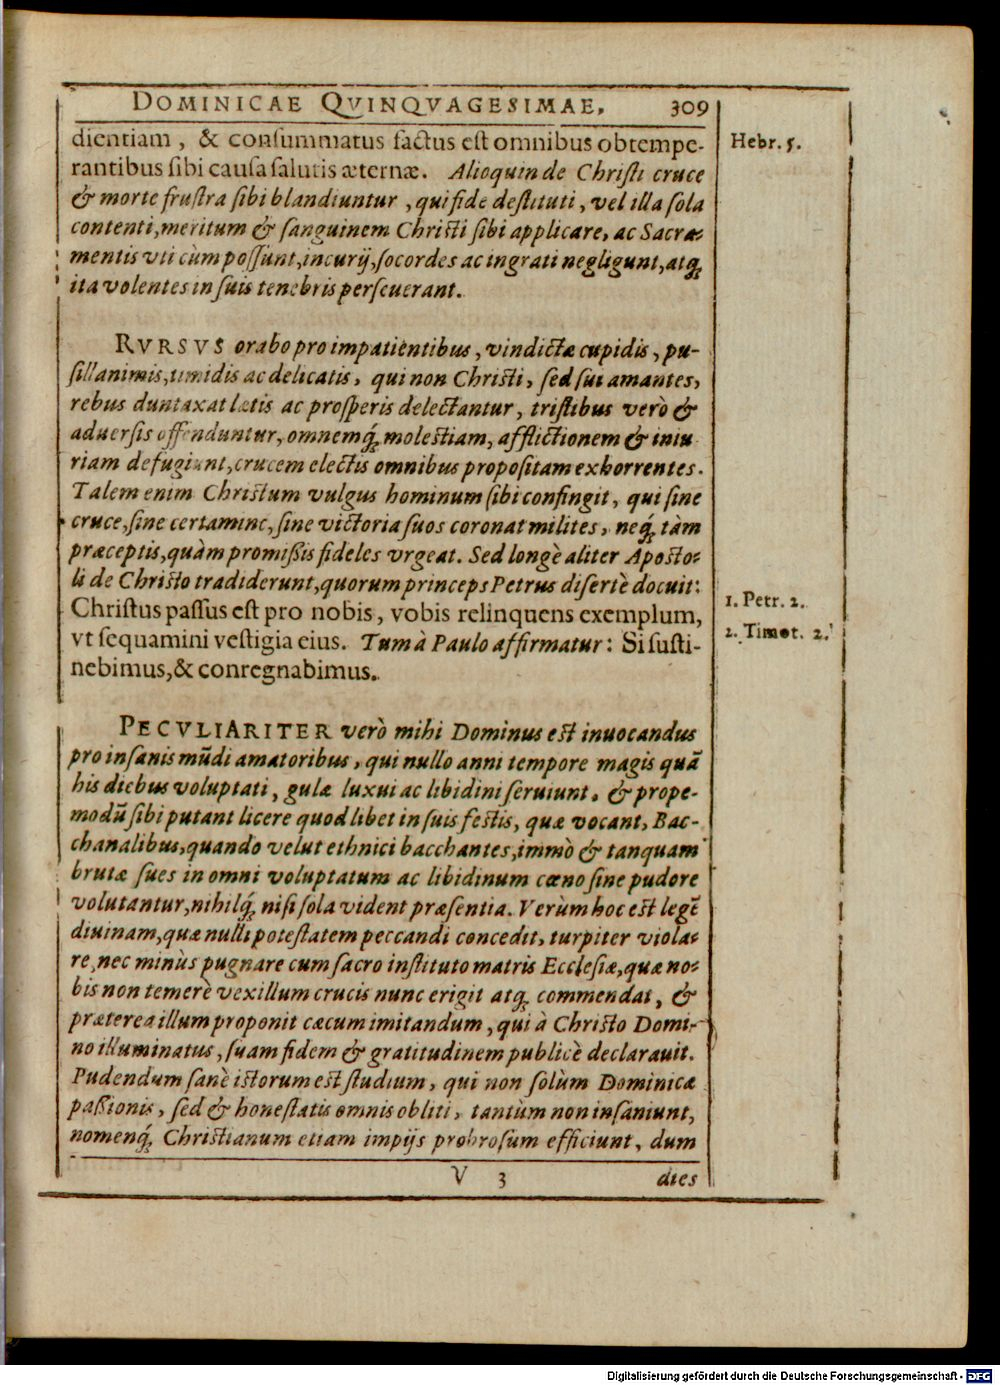 DOMINICAE QVINQVAGESIMAE. 309
dientiam, & consummatus factus est omnibus obtempe-
rantibus sibi causa salutis æternæ. Alioquin de Christi cruce
& morte frustra sibi blandiuntur, qui fide destituti, vel illa sola
contenti, meritum & sanguinem Christi sibi applicare, ac Sacra-
mentis vti cùm possunt, incurij, socordes ac ingrati negligunt, atq́;
ita volentes in suis tenebris perseuerant.
Hebr. 5.
RVRSVS orabo pro impatientibus, vindictæ cupidis, pu-
sillanimis, timidis ac delicatis, qui non Christi, sed sui amantes,
rebus duntaxat lætis ac prosperis delectantur, tristibus verò &
aduersis offenduntur, omnemq́; molestiam, afflictionem & iniu
riam defugiunt, crucem electis omnibus propositam exhorrentes.
Talem enim Christum vulgus hominum sibi confingit, qui sine
cruce, sine certamine, sine victoria suos coronat milites, neq́; tàm
præceptis, quàm promißis fideles vrgeat. Sed longè aliter Aposto-
li de Christo tradiderunt, quorum princeps Petrus disertè docuit:
Christus passus est pro nobis, vobis relinquens exemplum,
vt sequamini vestigia eius. Tum à Paulo affirmatur: Si susti-
nebimus, & conregnabimus.
1. Petr. 2.
2. Timot. 2.
PECVLIARITER verò mihi Dominus est inuocandus
pro insanis mũdi amatoribus, qui nullo anni tempore magis quã
his diebus voluptati, gulæ luxui ac libidini seruiunt, & prope-
modũ sibi putant licere quodlibet in suis festis, quæ vocant, Bac-
chanalibus, quando velut ethnici bacchantes, immò & tanquam
brutæ sues in omni voluptatum ac libidinum cœno sine pudore
volutantur, nihilq́; nisi sola vident præsentia. Verùm hoc est legẽ
diuinam, quæ nulli potestatem peccandi concedit, turpiter viola-
re, nec minùs pugnare cum sacro instituto matris Ecclesiæ, quæ no-
bis non temerè vexillum crucis nunc erigit atq́; commendat, &
præterea illum proponit cæcum imitandum, qui à Christo Domi-
no illuminatus, suam fidem & gratitudinem publicè declarauit.
Pudendum sanè istorum est studium, qui non solùm Dominicæ
paßionis, sed & honestatis omnis obliti, tantùm non insaniunt,
nomenq́; Christianum etiam impijs probrosum efficiunt, dum
V 3 dies
Digitalisierung gefördert durch die Deutsche Forschungsgemeinschaft - DFG